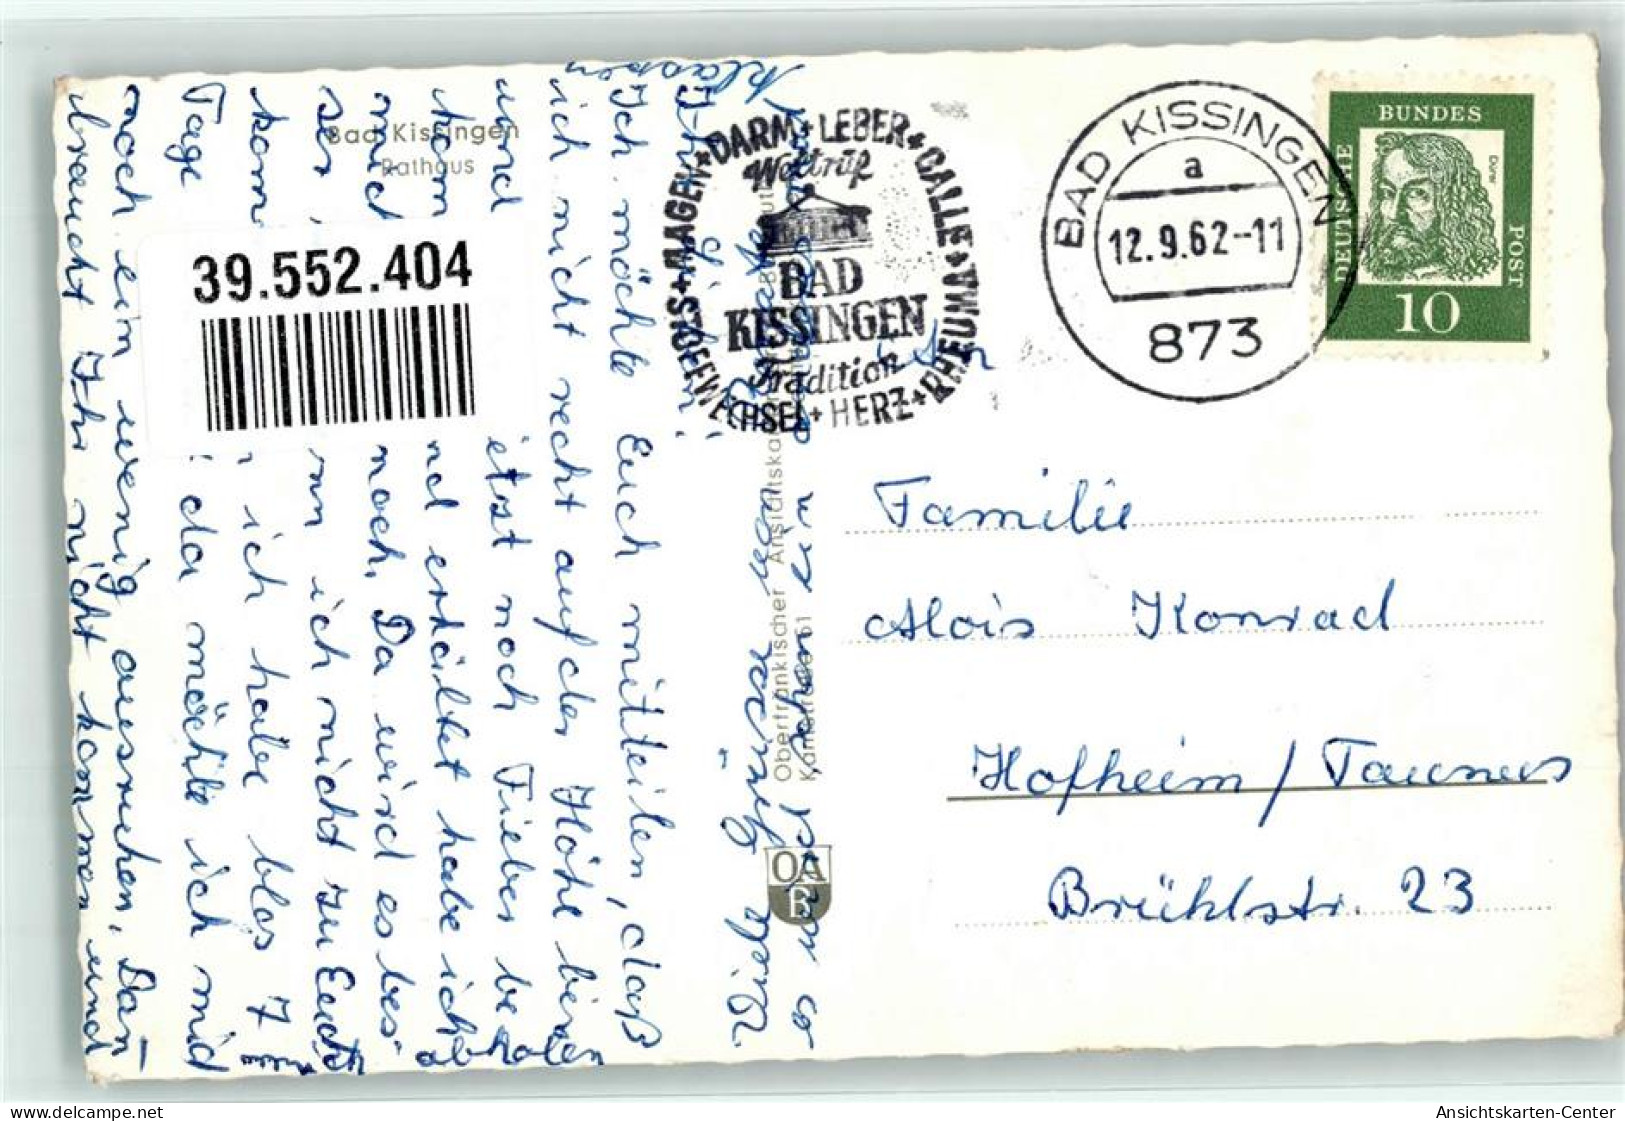 Bad Kissingen
Rathaus
39.552.404
MAGEN + DARM + LEBER + GALLE + RHEUMA + HERZ + STOFFWECHSEL +
Weltruf
BAD
KISSINGEN
Tradition
BAD KISSINGEN
a
12.9.62--11
873
DEUTSCHE
BUNDES
POST
Dürer
10
Familie
Alois Konrad
Hofheim / Taunus
Brühlstr. 23
Ihr Lieben!
Ich möchte Euch mitteilen, daß
ich nicht recht auf der Höhe bin
und
etzt noch Fieber be
nd erkältet habe ich
noch. Da wird es bes
ser,
nn ich nicht zu Euch
kom
ich habe blos 7
Tage
da möchte ich mid
noch ein wenig ausruhen. Dan-
braucht Ihr nicht kommen und
abholen
Viele Grüße von
klappen
Obertränkischer Ansichtskar
OA
B
delcampe.net
Ansichtskarten-Center